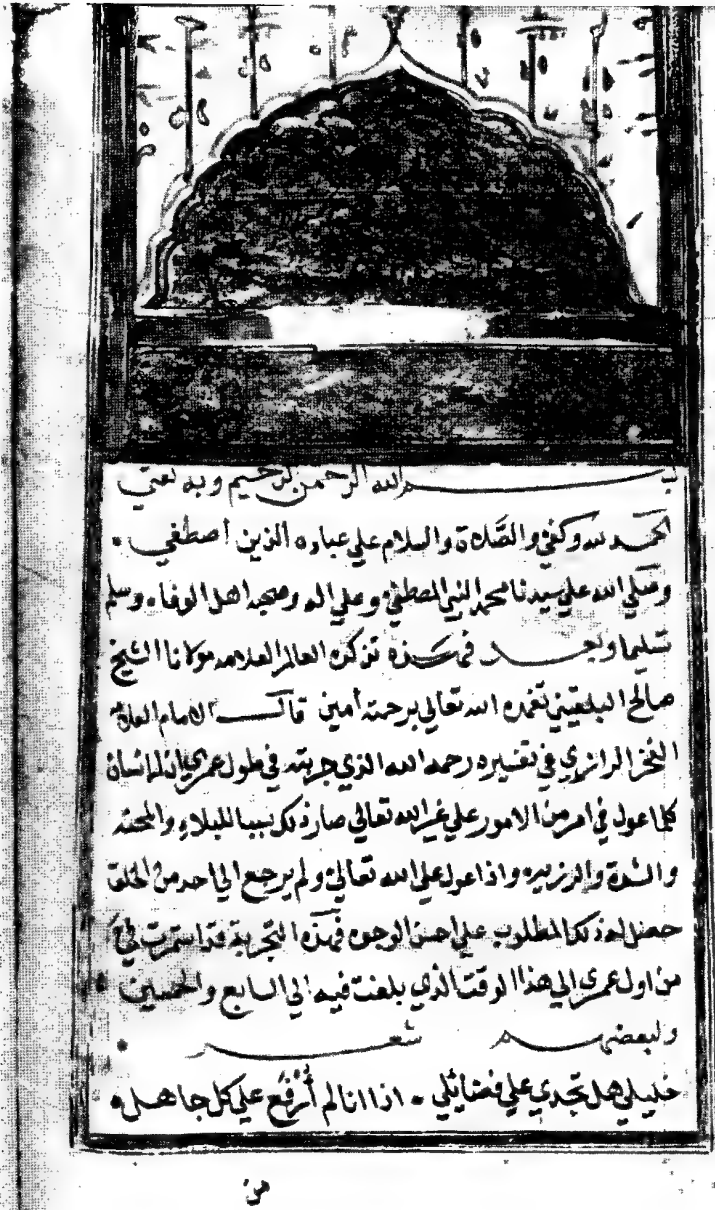 بسم الله الرحمن الرحيم وبه ثقتي
الحمد لله وكفي والصَّلاة والسلام علي عباده الذين اصطفي .
وصَلي الله علي سيدنا محمد النبي المصطفي وعلي اله وصحبه اهل الوفاء وسلم
تسليما وبعد فهذه تذكرة العالم العلامه مولانا الشيخ
صالح البلقيني تغمده الله تعالي برحمته أمين قال الامام العلامة
الفخر الرازي في تفسيره رحمه الله الذي جربته في طول عمري ان الانسان
كلما عول في امر من الامور علي غير الله تعالي صار ذلك سببا للبلاء والمحنه
والشدة والرزيه واذا عول علي الله تعالي ولم يرجع الي احد من الخلق
حصل له ذلك المطلوب علي احسن الوجوه فهذه التجربة قد استمرت لي
من اول عمري الي هذا الوقت الذي بلغت فيه الي السابع والخمسين
ولبعضهم شعر
خليلي هل تجدي علي فضائلي . اذا انا لم أُرفَع علي كل جاهل .
من